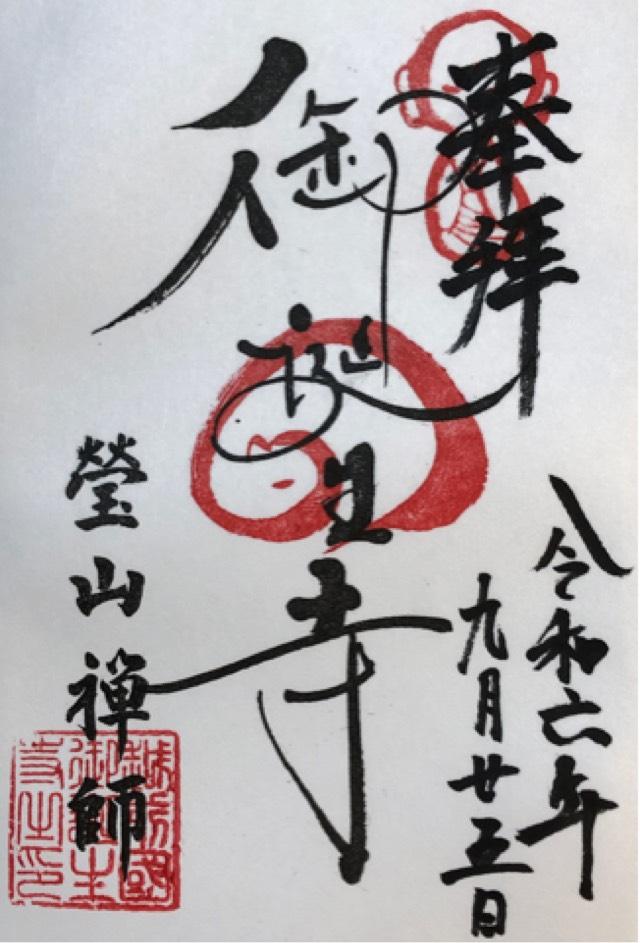 奉拝
令和六年
九月廿五日
御誕生寺
瑩山禅師
越前國
御誕生
寺之印